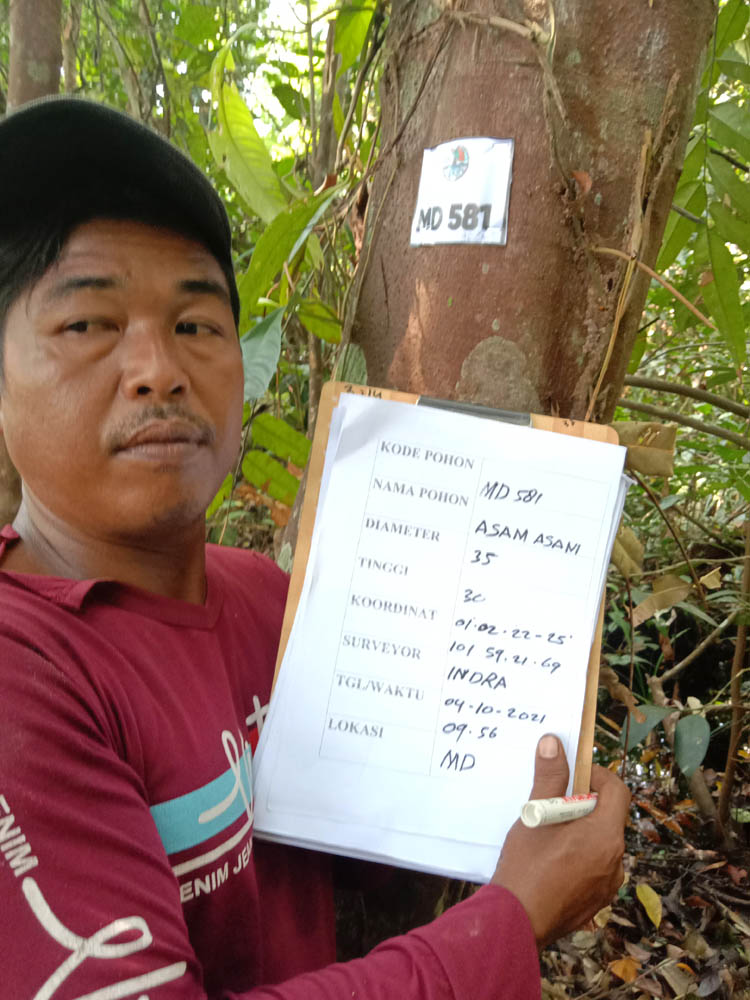 MD 581
KODE POHON MD 581
NAMA POHON ASAM ASANI
DIAMETER 35
TINGGI 30
KOORDINAT 01.02.22-25
101 59.21.69
SURVEYOR INDRA
TGL/WAKTU 04-10-2021
09.56
LOKASI MD
ENIM JE
ENIM